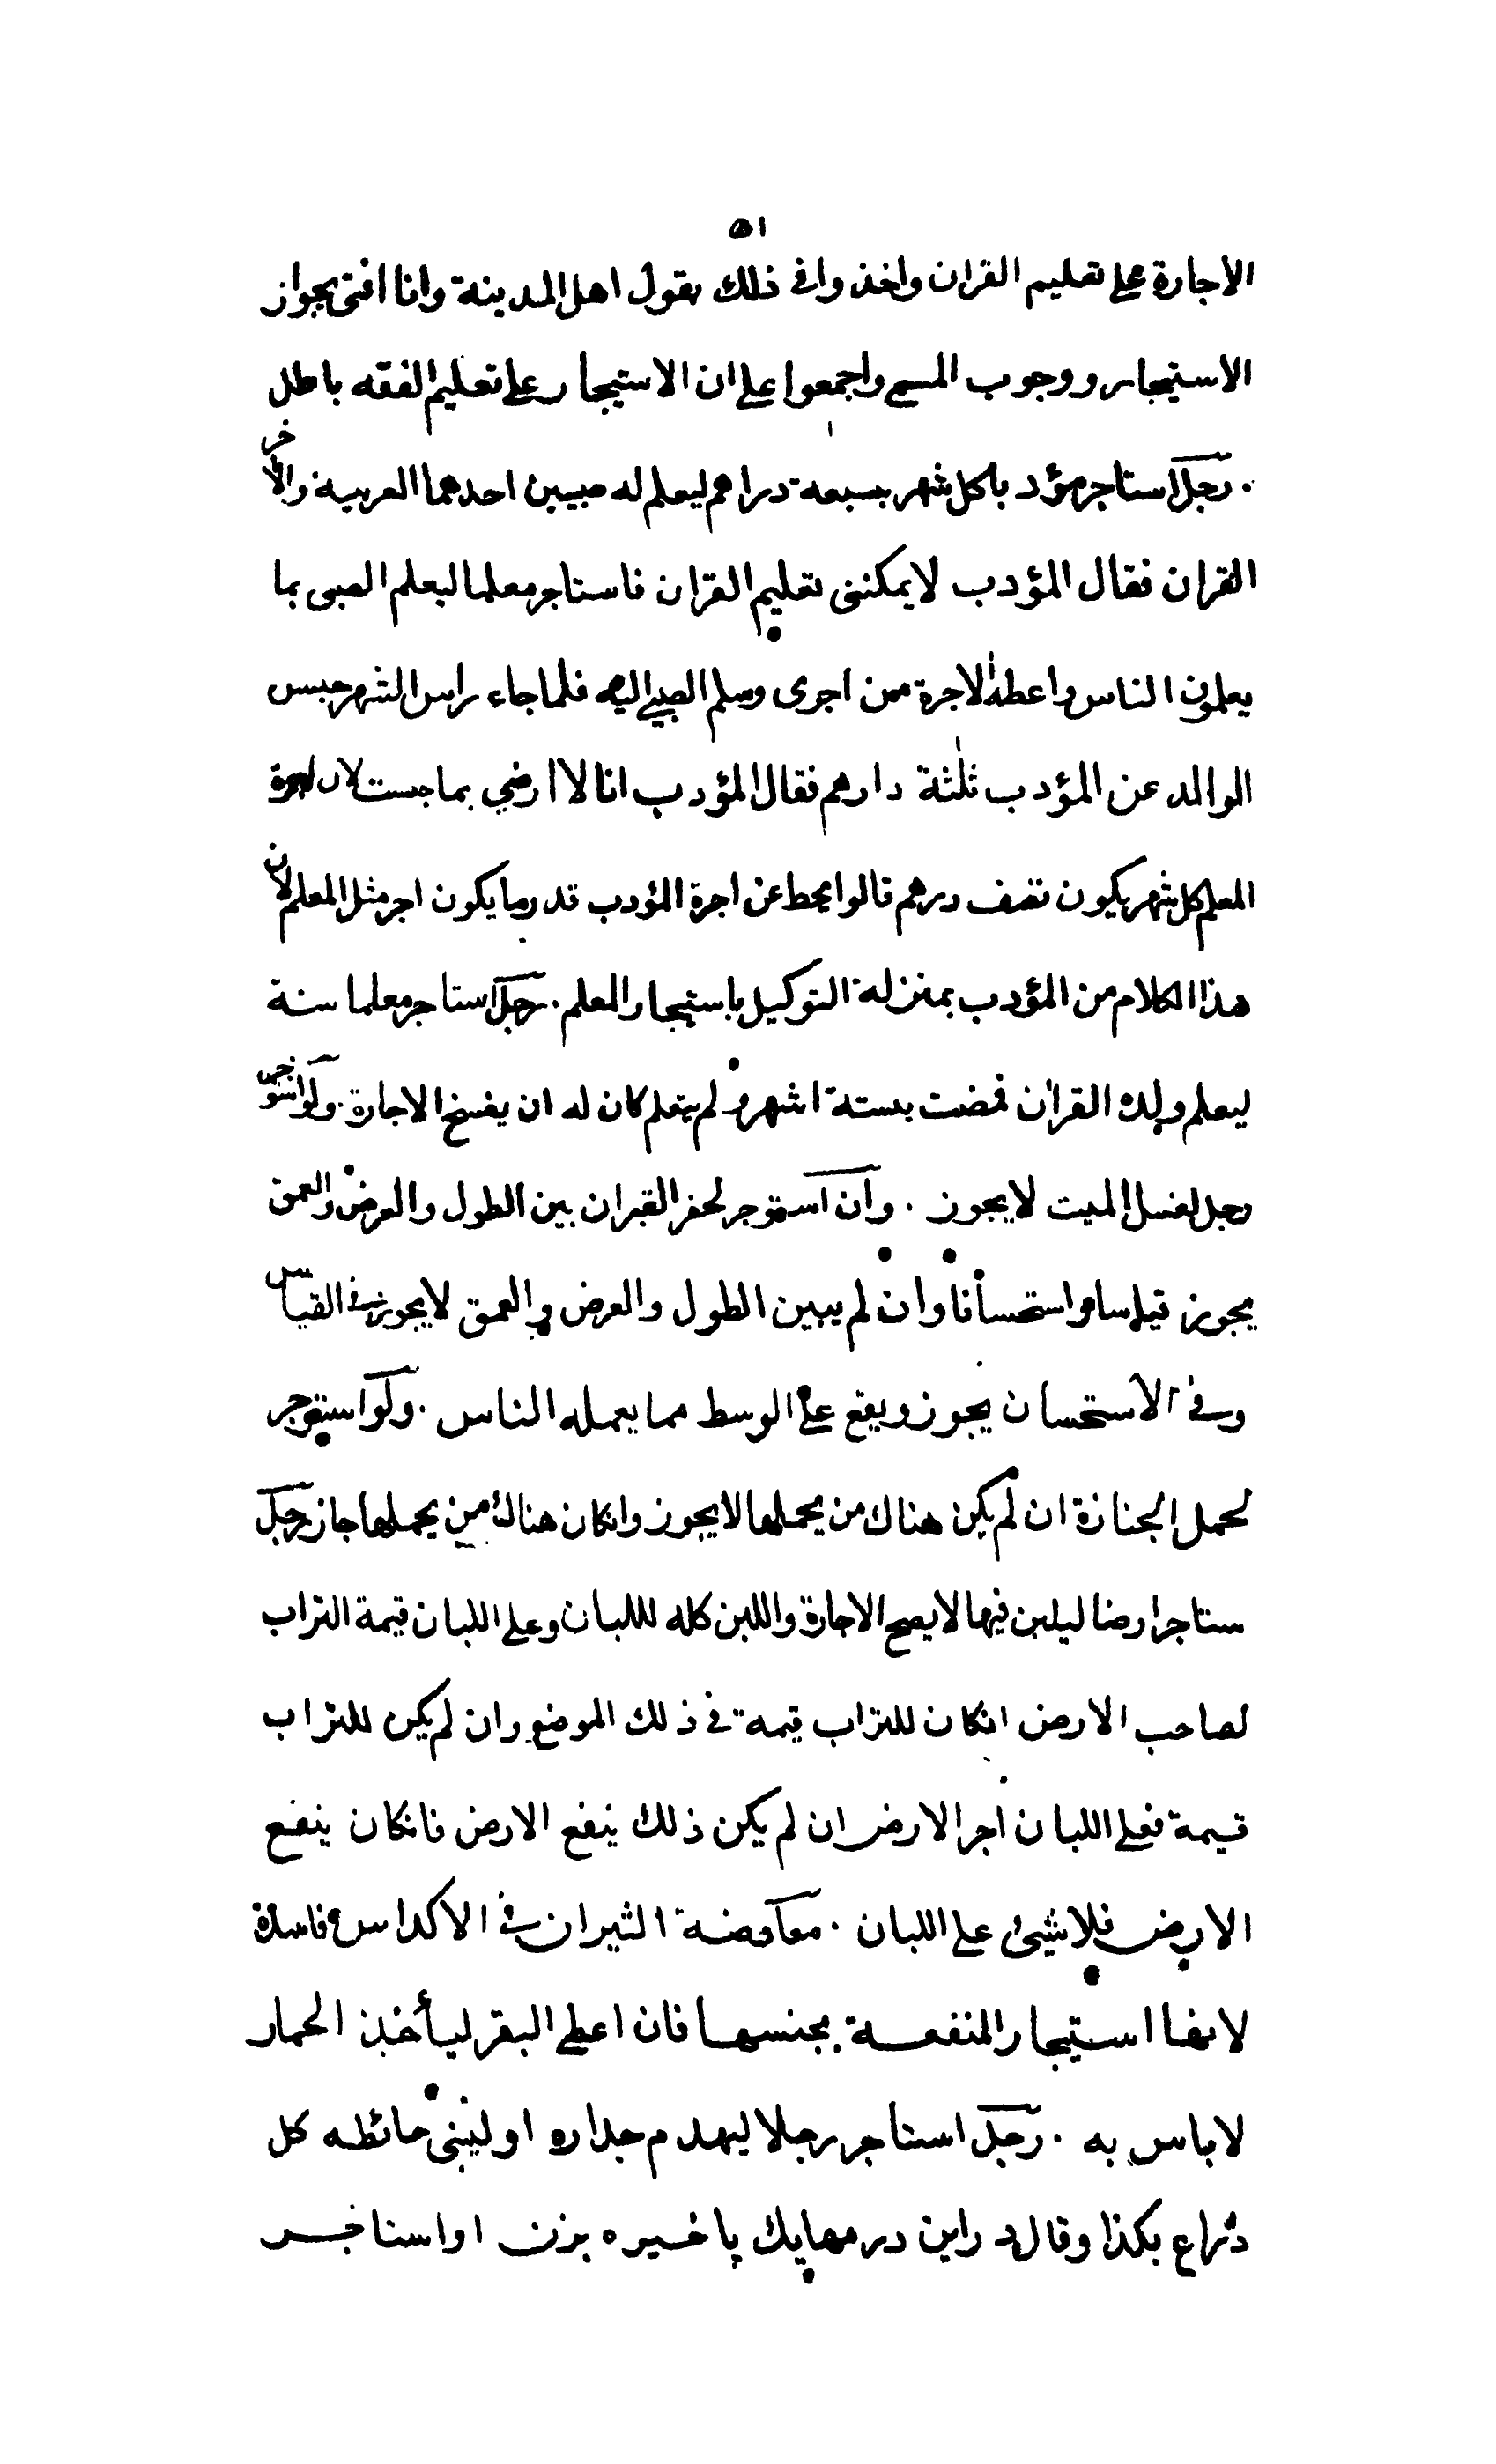 ٥١
الاجارة على تعليم القران واخذوا فى ذلك بقول اهل المدينة وانا افتى بجواز
الاستيجار ووجوب المسمى واجمعوا على ان الاستيجار على تعليم الفقه باطل
. رجل استاجر مؤدبا كل شهر بسبعة دراهم ليعلم له صبيين احدهما العربية والاخر
القران فقال المؤدب لا يمكننى تعليم القران فاستاجر معلما ليعلم الصبى بما
يعلمون الناس واعطه الاجرة من اجرى وسلم الصبى اليه فلما جاء راس الشهر حبس
الوالد عن المؤدب ثلثة دارهم فقال المؤدب انا لا ارضي بما حبست لان اجرة
المعلم كل شهر يكون نصف درهم قالوا يحط عن اجرة المؤدب قدر ما يكون اجر مثل المعلم لان
هذا الكلام من المؤدب بمنزلة التوكيل باستيجار المعلم . رجل استاجر معلما سنة
ليعلم ولده القران فمضت بستة اشهر ولم يتعلم كان له ان يفسخ الاجارة . ولو استوجر
رجل لغسل الميت لا يجوز . وان استوجر لحفر القبران بين الطول والعرض والعمق
يجوز قياسا واستحسانا وان لم يبين الطول والعرض والعمق لا يجوز فى القياس
وفى الاستحسان يجوز ويقع على الوسط مما يعمله الناس . ولو استوجر
لحمل الجنازة ان لم يكن هناك من يحملها لا يجوز وانكان هناك من يحملها جاز رجل
ستاجر ارضا ليلبن فيها لا يصح الاجارة واللبن كله لللبان وعلى اللبان قيمة التراب
لصاحب الارض انكان للتراب قيمة فى ذلك الموضع وان لم يكن للتراب
قيمة فعلى اللبان اجر الارض ان لم يكن ذلك ينفع الارض فانكان ينفع
الارض فلا شيئ على اللبان . معاوضة الثيران فى الاكداس فاسدة
لانها استيجار المنفعة بجنسها فان اعطى البقر ليأخذ الحمار
لا باس به . رجل استاجر رجلا ليهدم جداره او ليبنى حائطه كل
ذراع بكذا وقال راين درمها يك پاخسيره بزن او استاجر